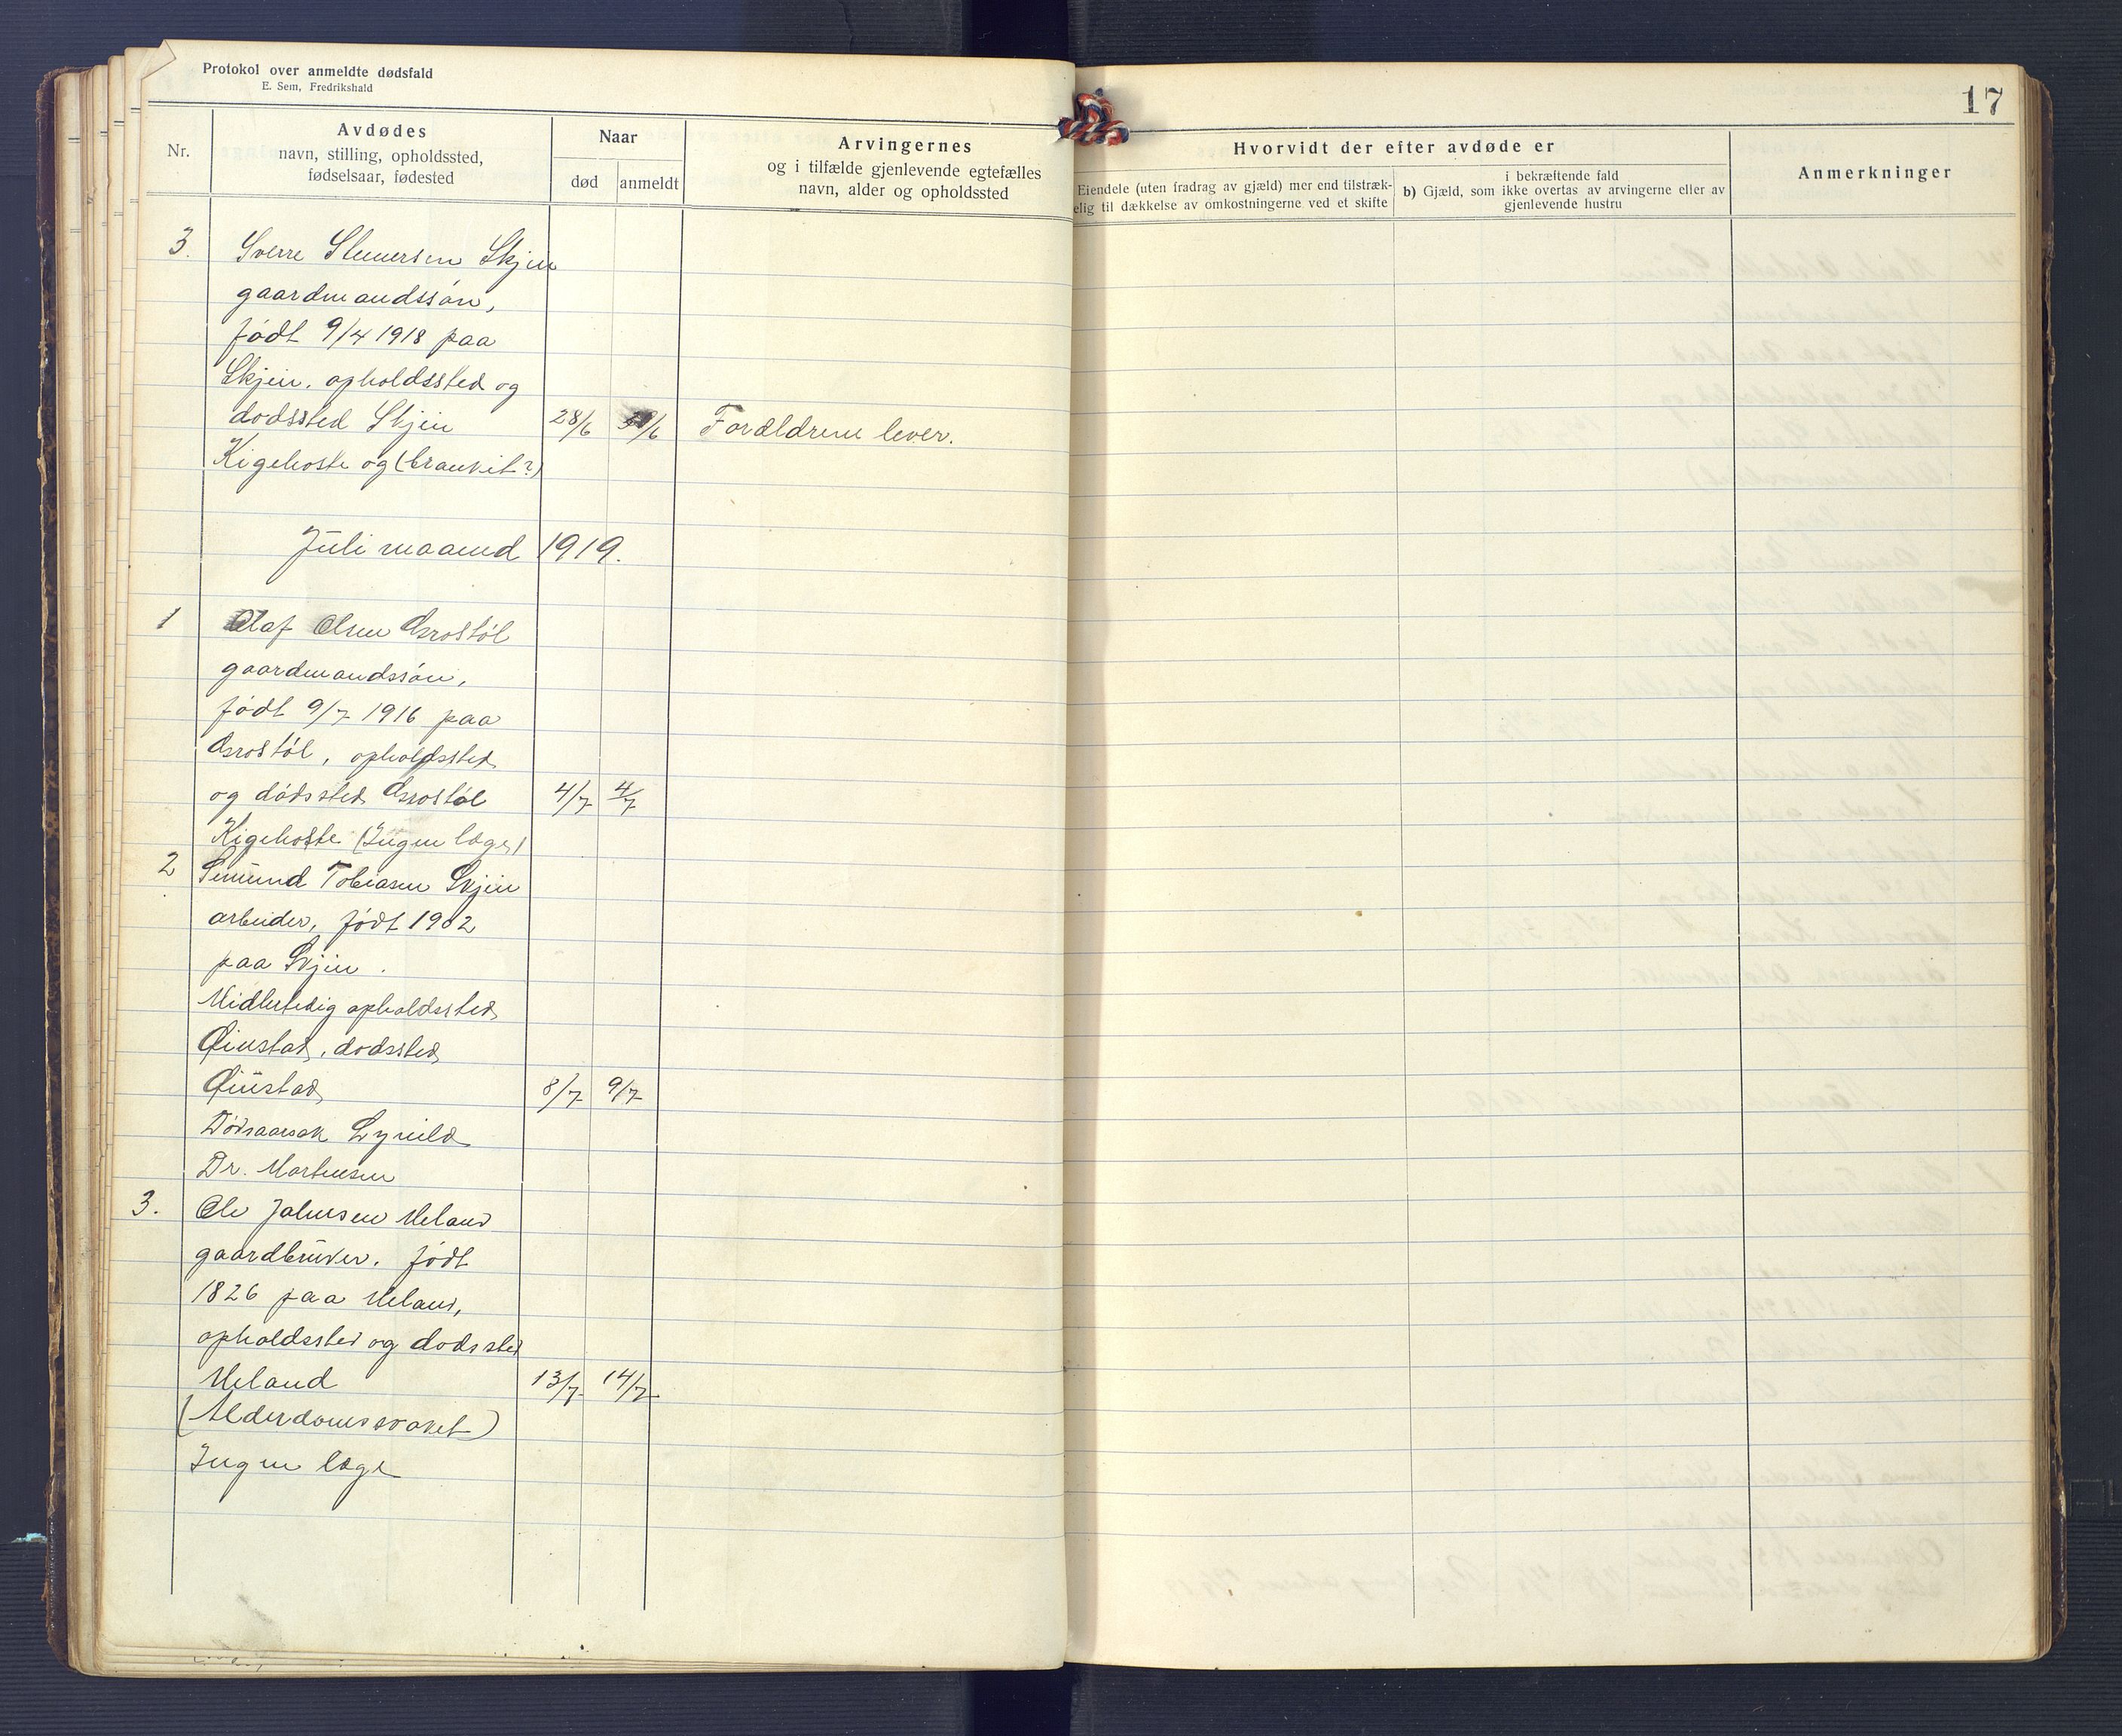 Protokol over anmeldte dødsfald
E. Sem, Fredrikshald
17
Nr.
Avdødes
navn, stilling, opholdssted,
fødselsaar, fødested
Naar
død
anmeldt
Arvingernes
og i tilfælde gjenlevende egtefælles
navn, alder og opholdssted
Hvorvidt der efter avdøde er
Eiendele (uten fradrag av gjæld) mer end tilstræk-
elig til dækkelse av omkostningerne ved et skifte
i bekræftende fald
b) Gjæld, som ikke overtas av arvingerne eller av
gjenlevende hustru
Anmerkninger
3. Sverre Skjein
gaardmandssøn,
født 9/4 1918 paa
Skjein. opholdssted og
dødssted Skjein 28/6 /6 Forældrene lever.
Kigehoste og
Juli maaned 1919.
1 Olaf Olsen
gaardmandssøn,
født 9/7 1916 paa
opholdssted
og dødssted 4/7 4/7
Kigehoste (Ingen læge)
2 Tobiasen Skjein
arbeider, født 1902
paa Skjein.
Midlertidig opholdssted
dødssted
8/7 9/7
Dødsaarsak
Dr. Mortensen
3. Ole Meland
gaardbruker. født
1826 paa Meland,
opholdssted og dødssted
Meland 13/7 14/7
(Alderdomssvaket)
Ingen læge